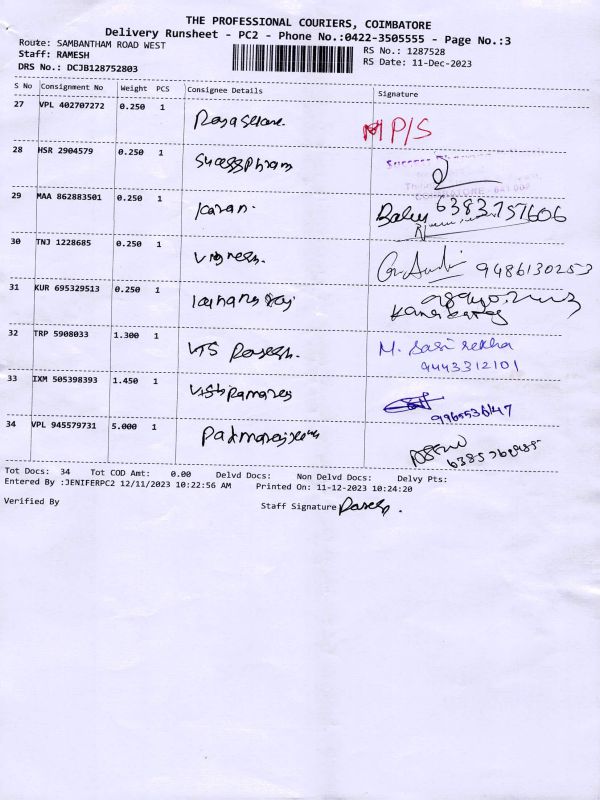 THE PROFESSIONAL COURIERS, COIMBATORE
Delivery Runsheet - PC2 - Phone No.:0422-3505555 - Page No.:3
Route: SAMBANTHAM ROAD WEST
RS No.: 1287528
Staff: RAMESH
RS Date: 11-Dec-2023
DRS No.: DCJB128752803
S No Consignment No Weight PCS Consignee Details Signature
27 VPL 402707272 0.250 1
P/S
28 HSR 2904579 0.250 1
29 MAA 862883501 0.250 1 Karan.
Babu 6383757606
30 TNJ 1228685 0.250 1 Vignesh.
9486130253
31 KUR 695329513 0.250 1
32 TRP 5908033 1.300 1 VTS Ramesh.
M. Sasi rekha
9443312101
33 IXM 505398393 1.450 1
34 VPL 945579731 5.000 1
Tot Docs: 34 Tot COD Amt: 0.00 Delvd Docs: Non Delvd Docs: Delvy Pts:
Entered By :JENIFERPC2 12/11/2023 10:22:56 AM Printed On: 11-12-2023 10:24:20
Verified By Staff Signature Ramesh.